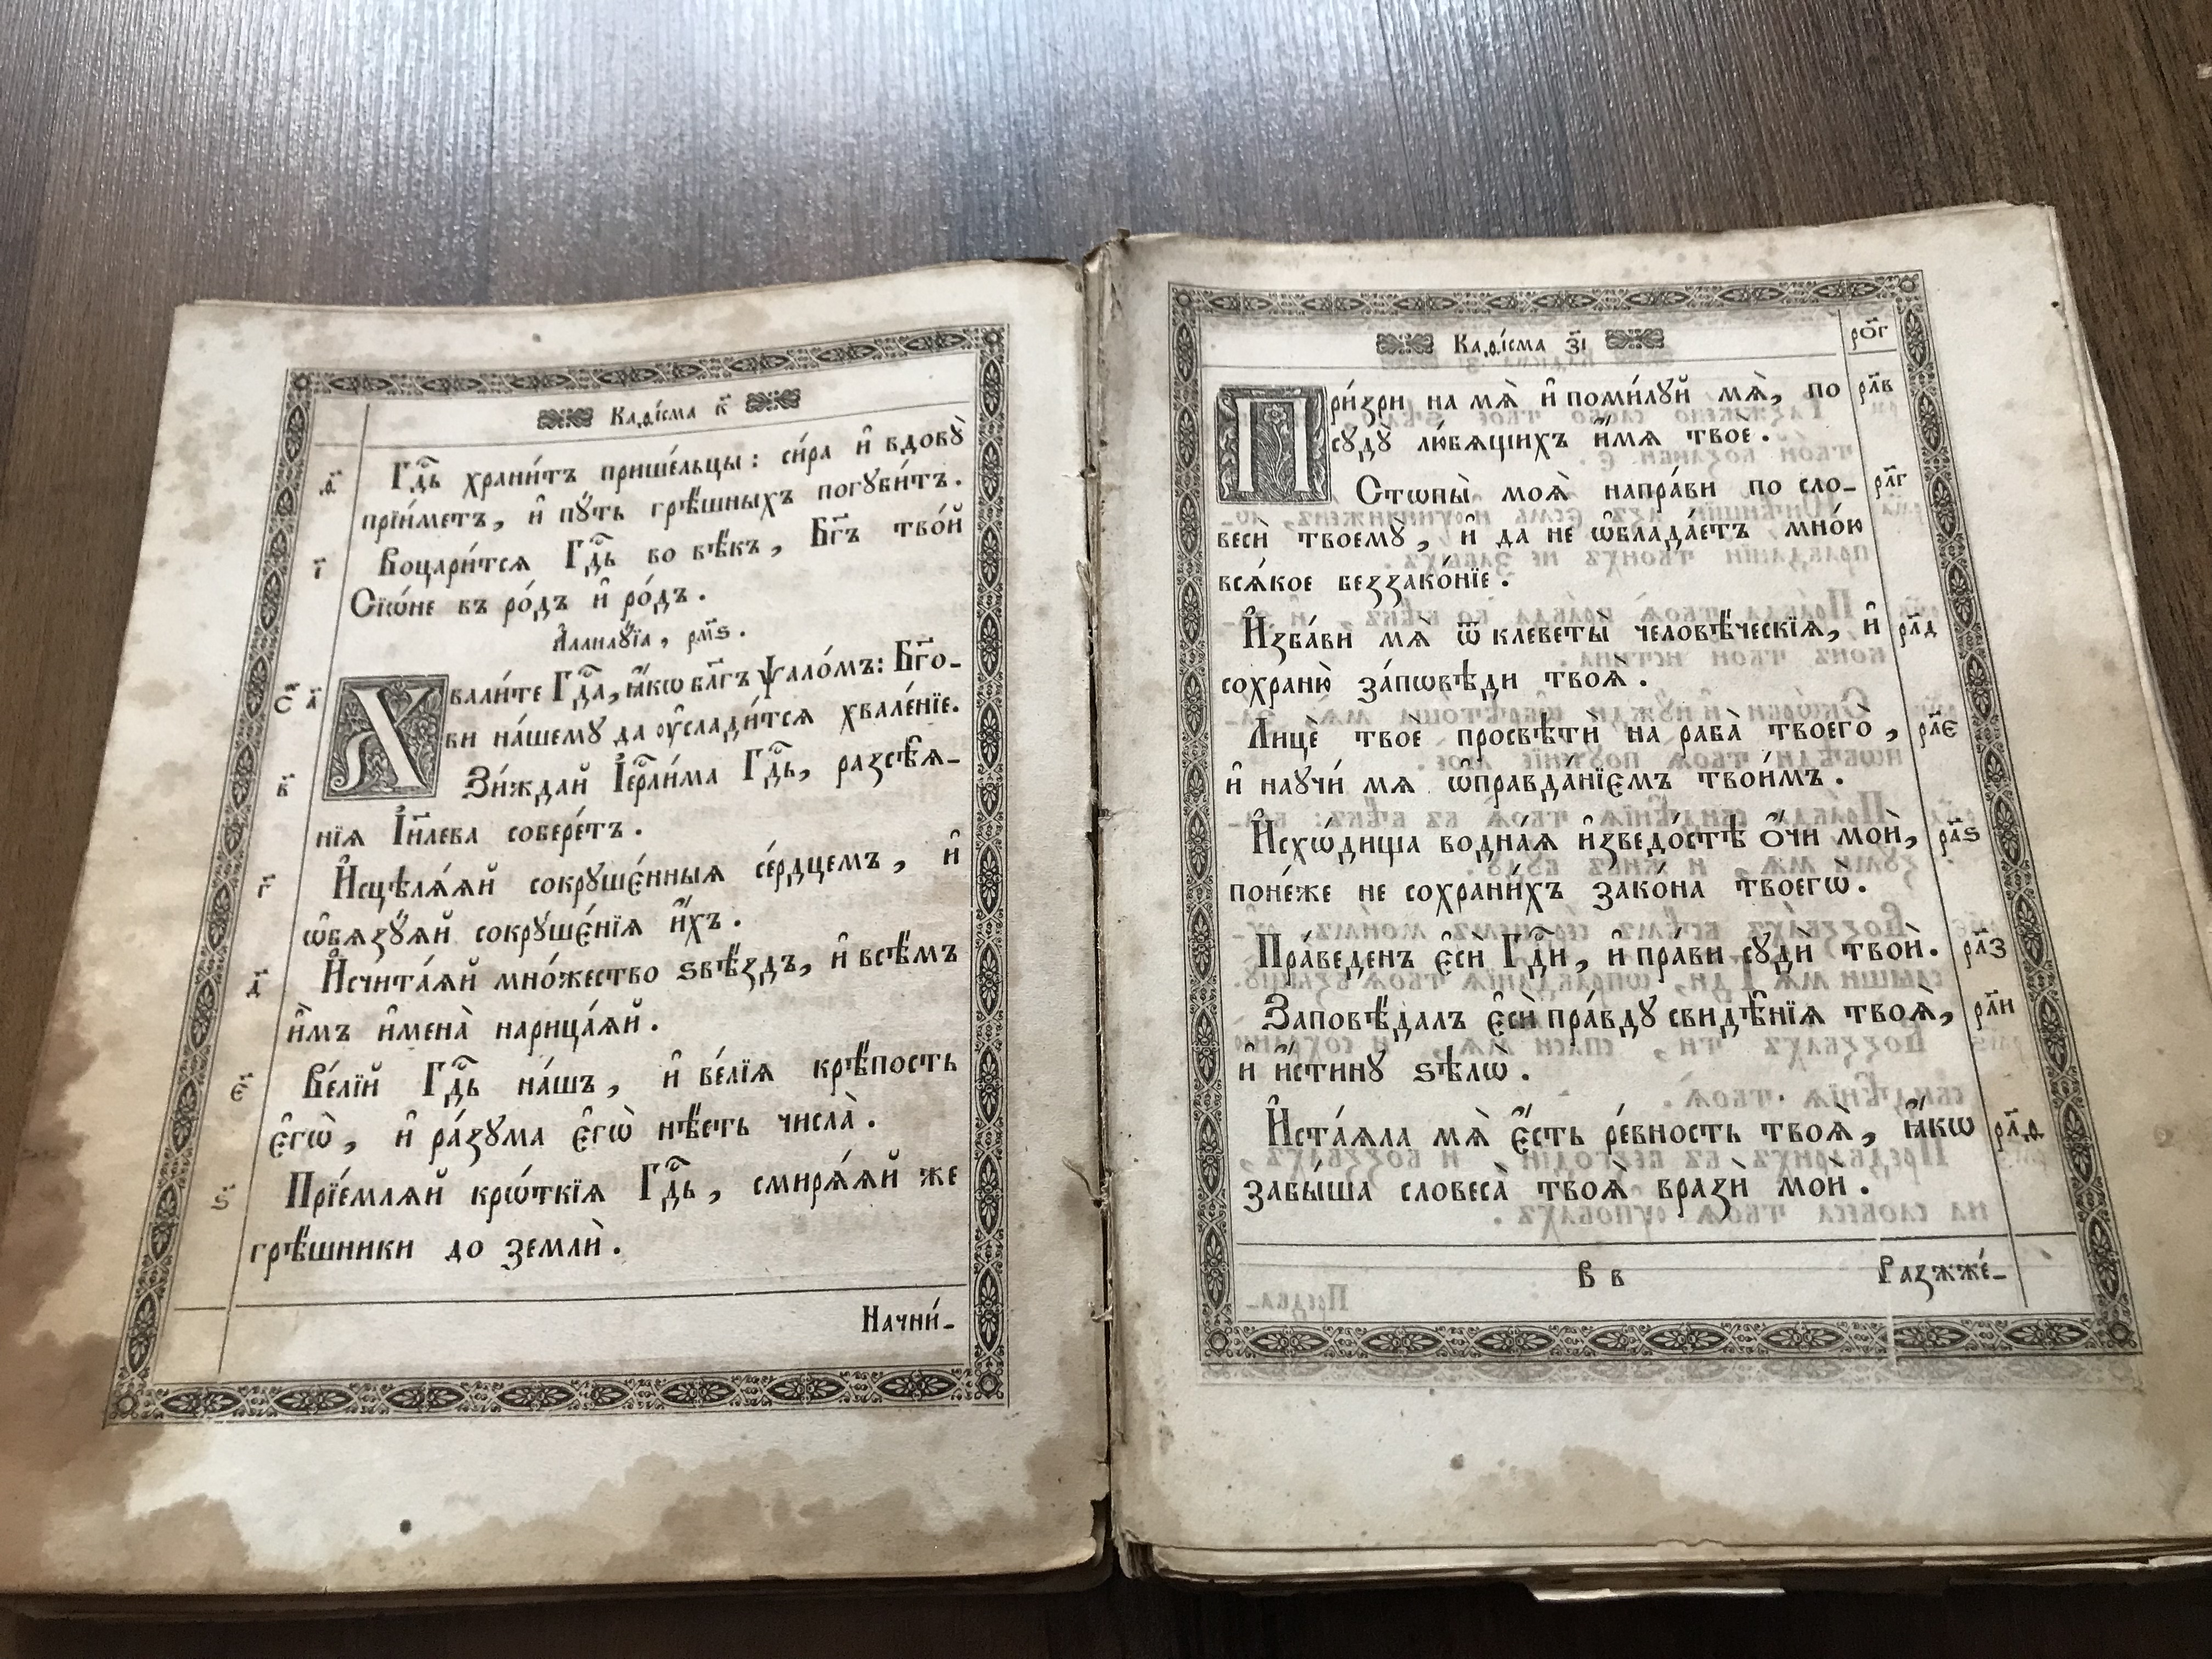 Каѳі́сма к҃
ѳ҃ Гдⷭ҇ь храни́тъ пришє́льцы: си́ра и҆ вдовꙋ̀
прїи́метъ, и҆ пꙋ́ть грѣ́шныхъ погꙋби́тъ.
і҃ Воцари́тсѧ Гдⷭ҇ь во вѣ́къ, Бг҃ъ тво́й
Сїѡ́не въ ро́дъ и҆ ро́дъ.
А҆ллилꙋ́їа, рм҃ѕ.
С҃ а҃ Хвали́те Гдⷭ҇а, ꙗ҆́кѡ бл҃гъ ѱало́мъ: Бг҃о-
ви на́шемꙋ да ᲂу҆слади́тсѧ хвале́нїе.
в҃ Зи́ждай І҆ерⷭ҇ли́ма Гдⷭ҇ь, разсѣ́ѧ-
нїѧ І҆и҃лева собере́тъ.
г҃ И҆сцѣлѧ́ѧй сокрꙋшє́нныѧ се́рдцемъ, и҆
ѡ҆бѧзꙋ́ѧй сокрꙋшє́нїѧ и҆́хъ.
д҃ И҆счита́ѧй мно́жество ѕвѣ́здъ, и҆ всѣ̑мъ
и҆̀мъ и҆мена̀ нарица́ѧй.
є҃ Ве́лїй Гдⷭ҇ь на́шъ, и҆ ве́лїѧ крѣ́пость
є҆гѡ̀, и҆ ра́зꙋма є҆гѡ̀ нѣ́сть числа̀.
ѕ҃ Прїе́млѧй крѡ́ткїѧ Гдⷭ҇ь, смирѧ́ѧй же
грѣ́шники до землѝ.
Начни́-
Каѳі́сма з҃і
ро҃г
При́зри на мѧ̀ и҆ поми́лꙋй мѧ̀, по рл҃в
сꙋдꙋ̀ лю́бѧщихъ и҆́мѧ твоѐ.
Стѡпы̀ моѧ̑ напра́ви по сло- рл҃г
весѝ твоемꙋ̀, и҆ да не ѡ҆блада́етъ мно́ю
всѧ́кое беззако́нїе.
И҆зба́ви мѧ̀ ѿ клеветы̀ человѣ́ческїѧ, и҆ рл҃д
сохраню̀ за́пѡвѣди твоѧ̑.
Лицѐ твоѐ просвѣтѝ на раба̀ твоего̀, рл҃є
и҆ наꙋчи́ мѧ ѡ҆правда́нїємъ твои̑мъ.
И҆схѡ́дища водна́ѧ и҆зведо́стѣ ѻ҆́чи моѝ, рл҃ѕ
поне́же не сохрани́хъ зако́на твоегѡ̀.
Пра́веденъ є҆сѝ Гдⷭ҇и, и҆ пра́ви сꙋдѝ твоѝ. рл҃з
Заповѣ́далъ є҆сѝ пра́вдꙋ свидѣ̑нїѧ твоѧ̑, рл҃и
и҆ и҆́стинꙋ ѕѣлѡ̀.
И҆ста́ѧла мѧ̀ є҆́сть ре́вность твоѧ̀, ꙗ҆́кѡ рл҃ѳ
забы́ша словеса̀ твоѧ̑ вразѝ моѝ.
В в Разжже́-